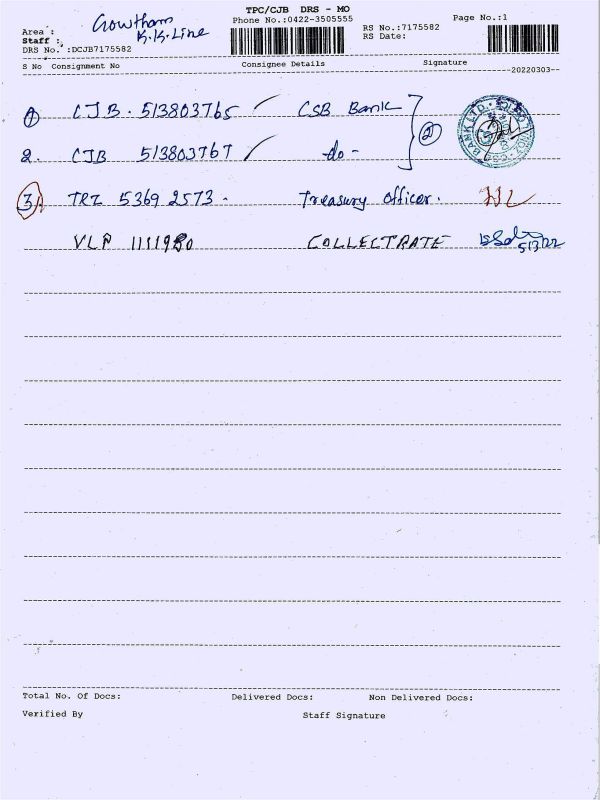 TPC/CJB DRS - MO
Gowtham
Phone No.:0422-3505555
Page No.:1
Area :
K.K.Line
RS No.:7175582
Staff :
RS Date:
DRS No. :DCJB7175582
S No Consignment No Consignee Details Signature
20220303
1 CJB. 513803765 CSB Bank
2. CJB 513803767 -do- 2
3 TRZ 5369 2573. Treasury Officer.
VLR 1111980 COLLECTRATE
Total No. Of Docs: Delivered Docs: Non Delivered Docs:
Verified By Staff Signature